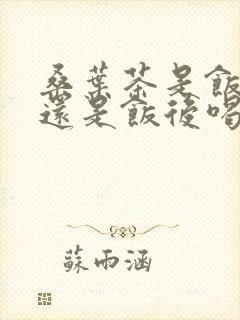 桑葉茶是飯
還是飯後喝
蘇雨涵